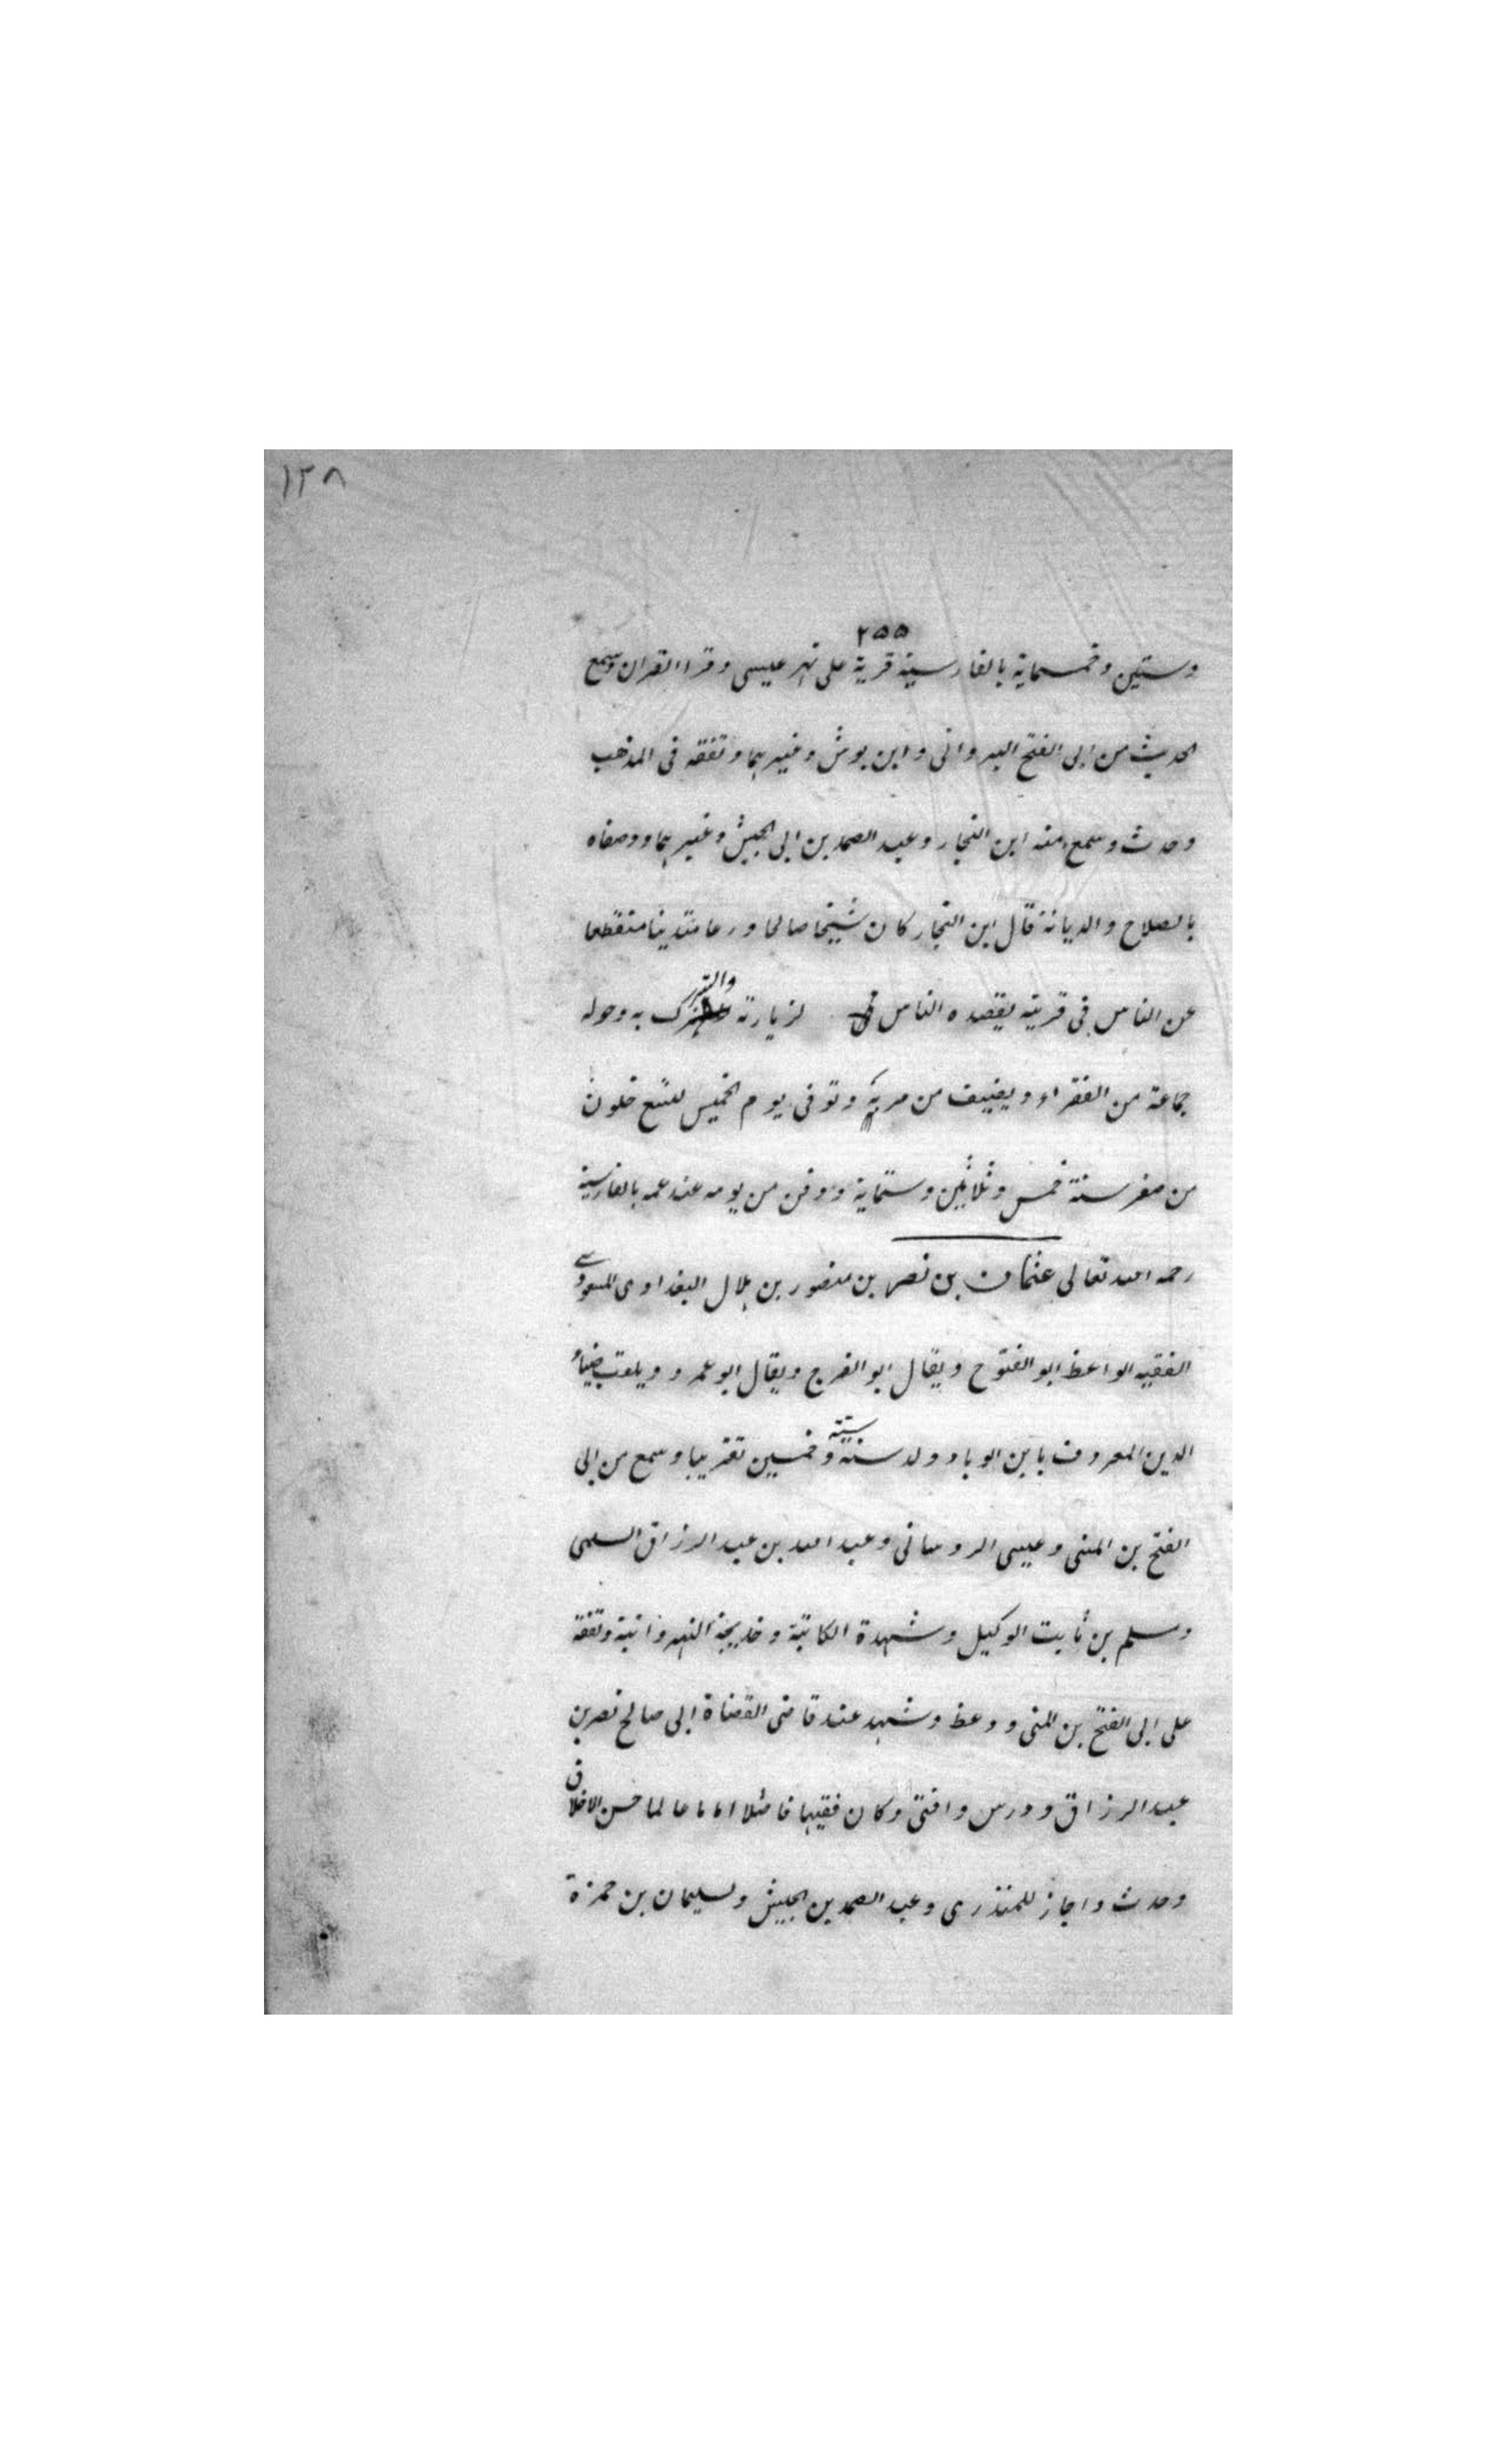 ١٢٨
٢٥٥
وستين وخمسماية بالفارسية قرية على نهر عيسى وقرا القران وسمع
الحديث من ابى الفتح البردانى وابن بوش وغيرهما وتفقه فى المذهب
وحدث وسمع منه ابن النجار وعبد الصمد بن ابى الجيش وغيرهما ووصفاه
بالصلاح والديانة قال ابن النجار كان شيخا صالحا ورعا متدينا منقطعا
عن الناس فى قريته يقصده الناس لزيارته والتبرك به وحوله
جماعة من الفقراء ويضيف من مر به وتوفى يوم الخميس لتسع خلون
من صفر سنة خمس وثلاثين وستماية ودفن من يومه عند عمه بالفارسية
رحمه الله تعالى عثمان بن نصر بن منصور بن هلال البغدادى المسعودى
الفقيه الواعظ ابو الفتوح ويقال ابو الفرج ويقال ابو عمرو ويلقب ضياء
الدين المعروف بابن الوباد ولد سنة ستة وخمسين تقريبا وسمع من ابى
الفتح بن المنى وعيسى الروسانى وعبد الله بن عبد الرزاق السلمى
ومسلم بن ثابت الوكيل وشهدة الكاتبة وخديجة النهروانية وتفقه
على ابى الفتح بن المنى ووعظ وشهد عند قاضى القضاة ابى صالح نصر بن
عبد الرزاق ودرس وافتى وكان فقيها فاضلا اماما عالما حسن الاخلاق
وحدث واجاز للمنذرى وعبد الصمد بن الجيش ولسليمان بن حمزة